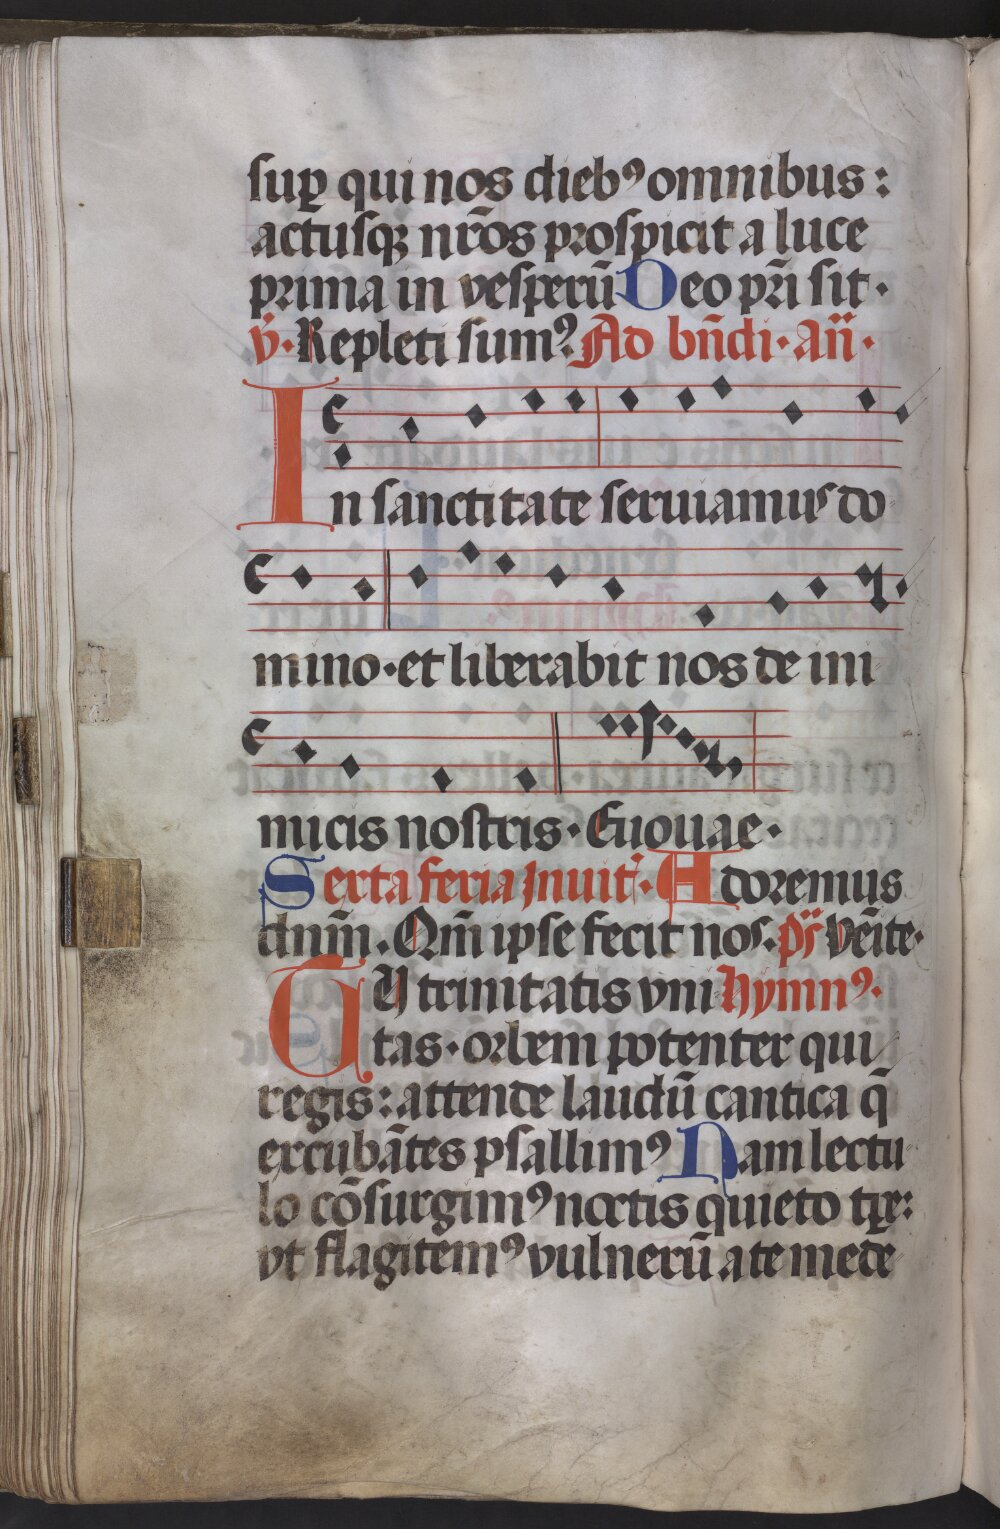 suꝑ qui nos dieb⁹ omnibus :
actusqꝫ nr̄os prospicit a luce
prima in vesperū Deo pr̄i sit ·
v̇ · Repleti sum⁹. Ad bn̄di · an̄ ·
In sanctitate seruiamus do
mino · et liberabit nos de ini
micis nostris · Euouae ·
Sexta feria Inuit · Adoremus
dnm̄ . Qm̄ ipse fecit nos . ps̄ vēite ·
TU trinitatis vni Hymn⁹ ·
tas · orbem potenter qui
regis : attende laudū cantica q̄
excubātes psallim⁹ Nam lectu
lo cōsurgim⁹ noctis quieto tꝑe :
vt flagitem⁹ vulnerū a te mede